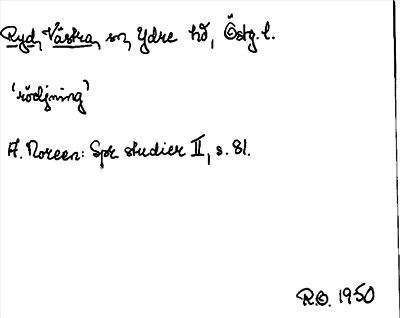 Ryd, Västra, sn, Ydre hd, Östg. l.
'rödjning'
A. Noreen: Spr studier II, s. 81.
R.O. 1950